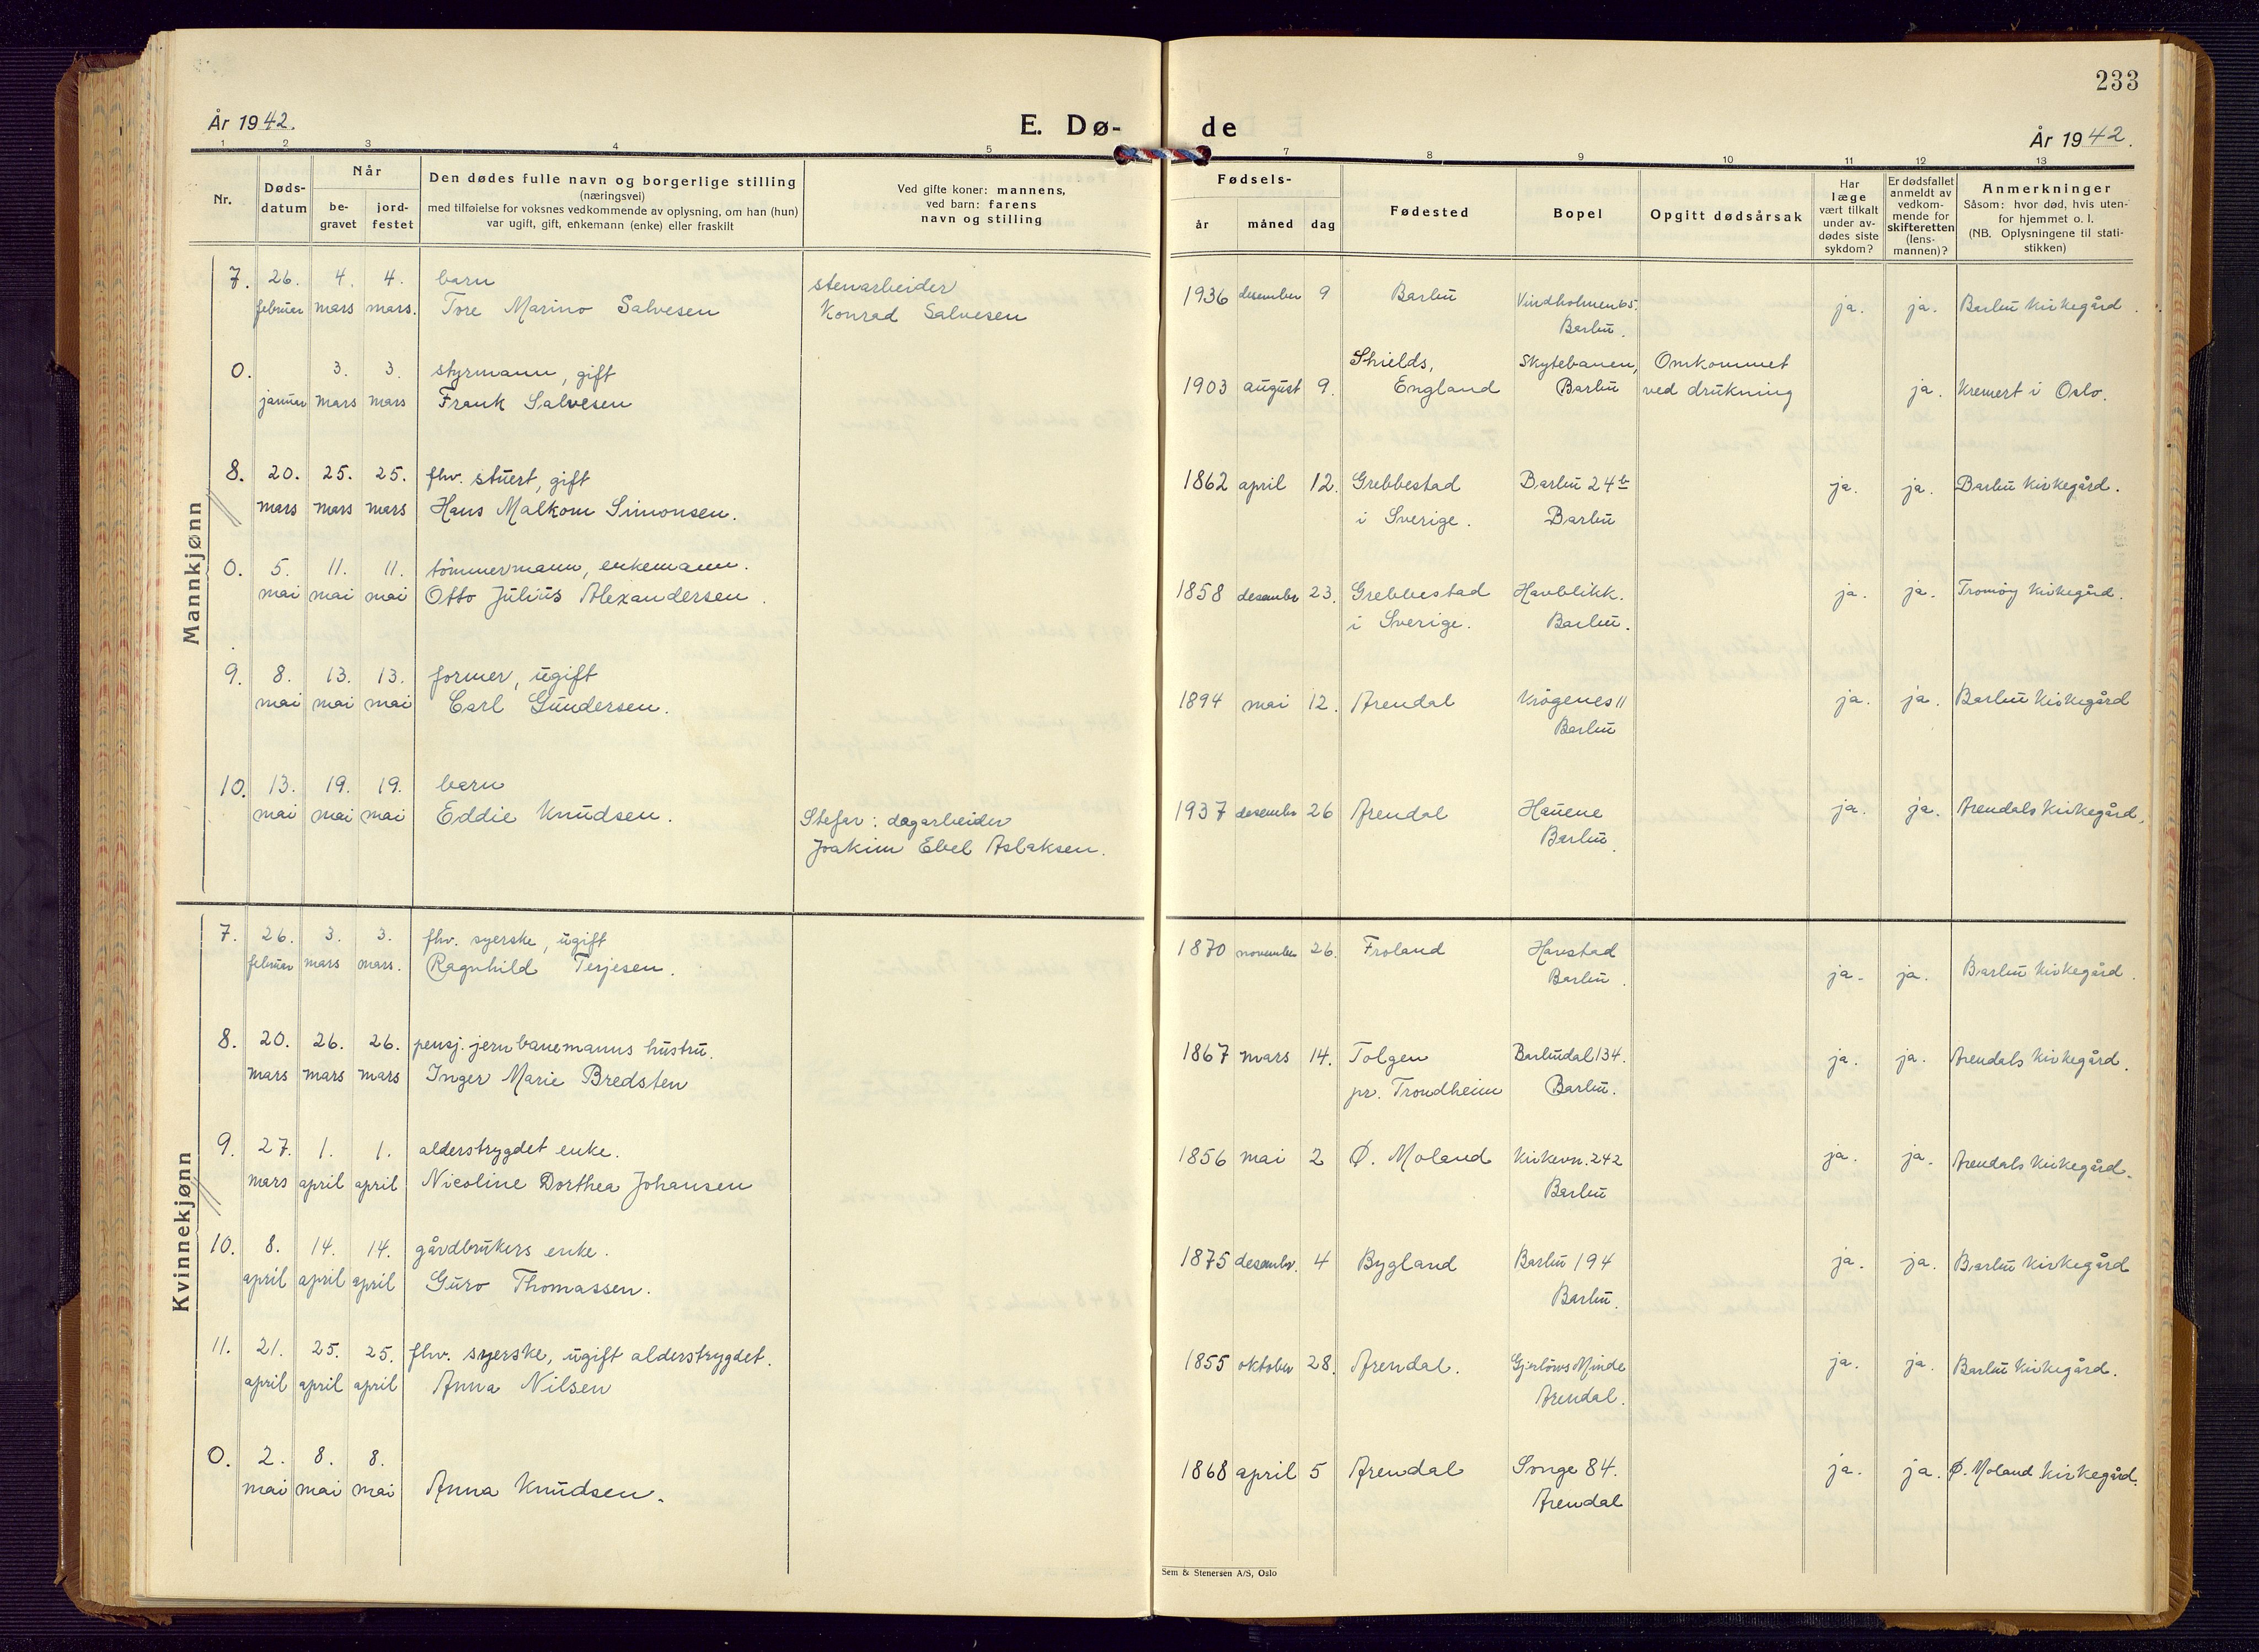 233
År 1942.
E. Dø-
de
År 1942.
1 2 3 4 5
7 8 9 10 11 12 13
Nr.
Døds-
datum
Når
be-
gravet
jord-
festet
Den dødes fulle navn og borgerlige stilling
(næringsvei)
med tilføielse for voksnes vedkommende av oplysning, om han (hun)
var ugift, gift, enkemann (enke) eller fraskilt
Ved gifte koner: mannens,
ved barn: farens
navn og stilling
Fødsels-
år måned dag
Fødested
Bopel
Opgitt dødsårsak
Har
læge
vært tilkalt
under av-
dødes siste
sykdom?
Er dødsfallet
anmeldt av
vedkom-
mende for
skifteretten
(lens-
mannen)?
Anmerkninger
Såsom: hvor død, hvis uten-
for hjemmet o. l.
(NB. Oplysningene til stati-
stikken)
Mannkjønn
7. 26. 4. 4. barn stenarbeider
februar mars mars. Tore Marino Salvesen Konrad Salvesen
1936 desember 9 Barbu Vindholmen 65. ja. ja. Barbu Kirkegård.
Barbu.
0. 3. 3. styrmann, gift
januar mars mars Frank Salvesen
Shields, Skytebanen, Omkommet
1903 august 9. England Barbu ved drukning ja. Kremert i Oslo.
8. 20. 25. 25. fhv. stuert, gift
mars mars mars Hans Malkom Simonsen.
1862 april 12. Grebbestad Barbu 24b ja. ja. Barbu Kirkegård.
i Sverige. Barbu
0. 5. 11. 11. tømmermann, enkemann.
mai mai mai Otto Julius Alexandersen.
1858 desember 23. Grebbestad Havblikk. ja. ja. Tromöy Kirkegård.
i Sverige. Barbu.
9. 8. 13. 13. former, ugift
mai mai mai Carl Gundersen.
1894 mai 12. Arendal Krögenes 11 ja. ja. Barbu Kirkegård
Barbu
10. 13. 19. 19. barn
mai mai mai Eddie Knudsen. Stefar: dagarbeider
Joakim Ebel Aslaksen.
1937 desember 26 Arendal Hauene ja. ja. Arendals Kirkegård.
Barbu.
Kvinnekjønn
7. 26. 3. 3. fhv. syerske, ugift
februar mars mars. Ragnhild Terjesen.
1870 november 26. Froland Harstad ja. ja. Barbu Kirkegård.
Barbu.
8. 20. 26. 26. pensj. jernbanemanns hustru.
mars mars mars Inger Marie Bredsten
1867 mars 14. Tolgen Barbudal 134. ja. ja. Arendals Kirkegård.
pr. Trondheim Barbu.
9. 27. 1. 1. alderstrygdet enke.
mars april april Nicoline Dorthea Johansen
1856 mai 2 Ø. Moland Kirkevn. 242 ja. ja. Arendals Kirkegård.
Barbu
10. 8. 14. 14. gårdbrukers enke.
april april april Guro Thomassen.
1875 desember. 4 Bygland Barbu 194 ja. ja. Barbu Kirkegård
Barbu.
11. 21. 25. 25. fhv. syerske, ugift alderstrygdet.
april april april Anna Nilsen
1855 oktober 28. Arendal. Gjerlöws Minde ja. ja. Barbu Kirkegård.
Arendal.
0. 2. 8. 8.
mai mai mai Anna Knudsen.
1868 april 5 Arendal Songe 84. ja. ja. Ø. Moland Kirkegård.
Arendal
Sem & Stenersen A/S, Oslo